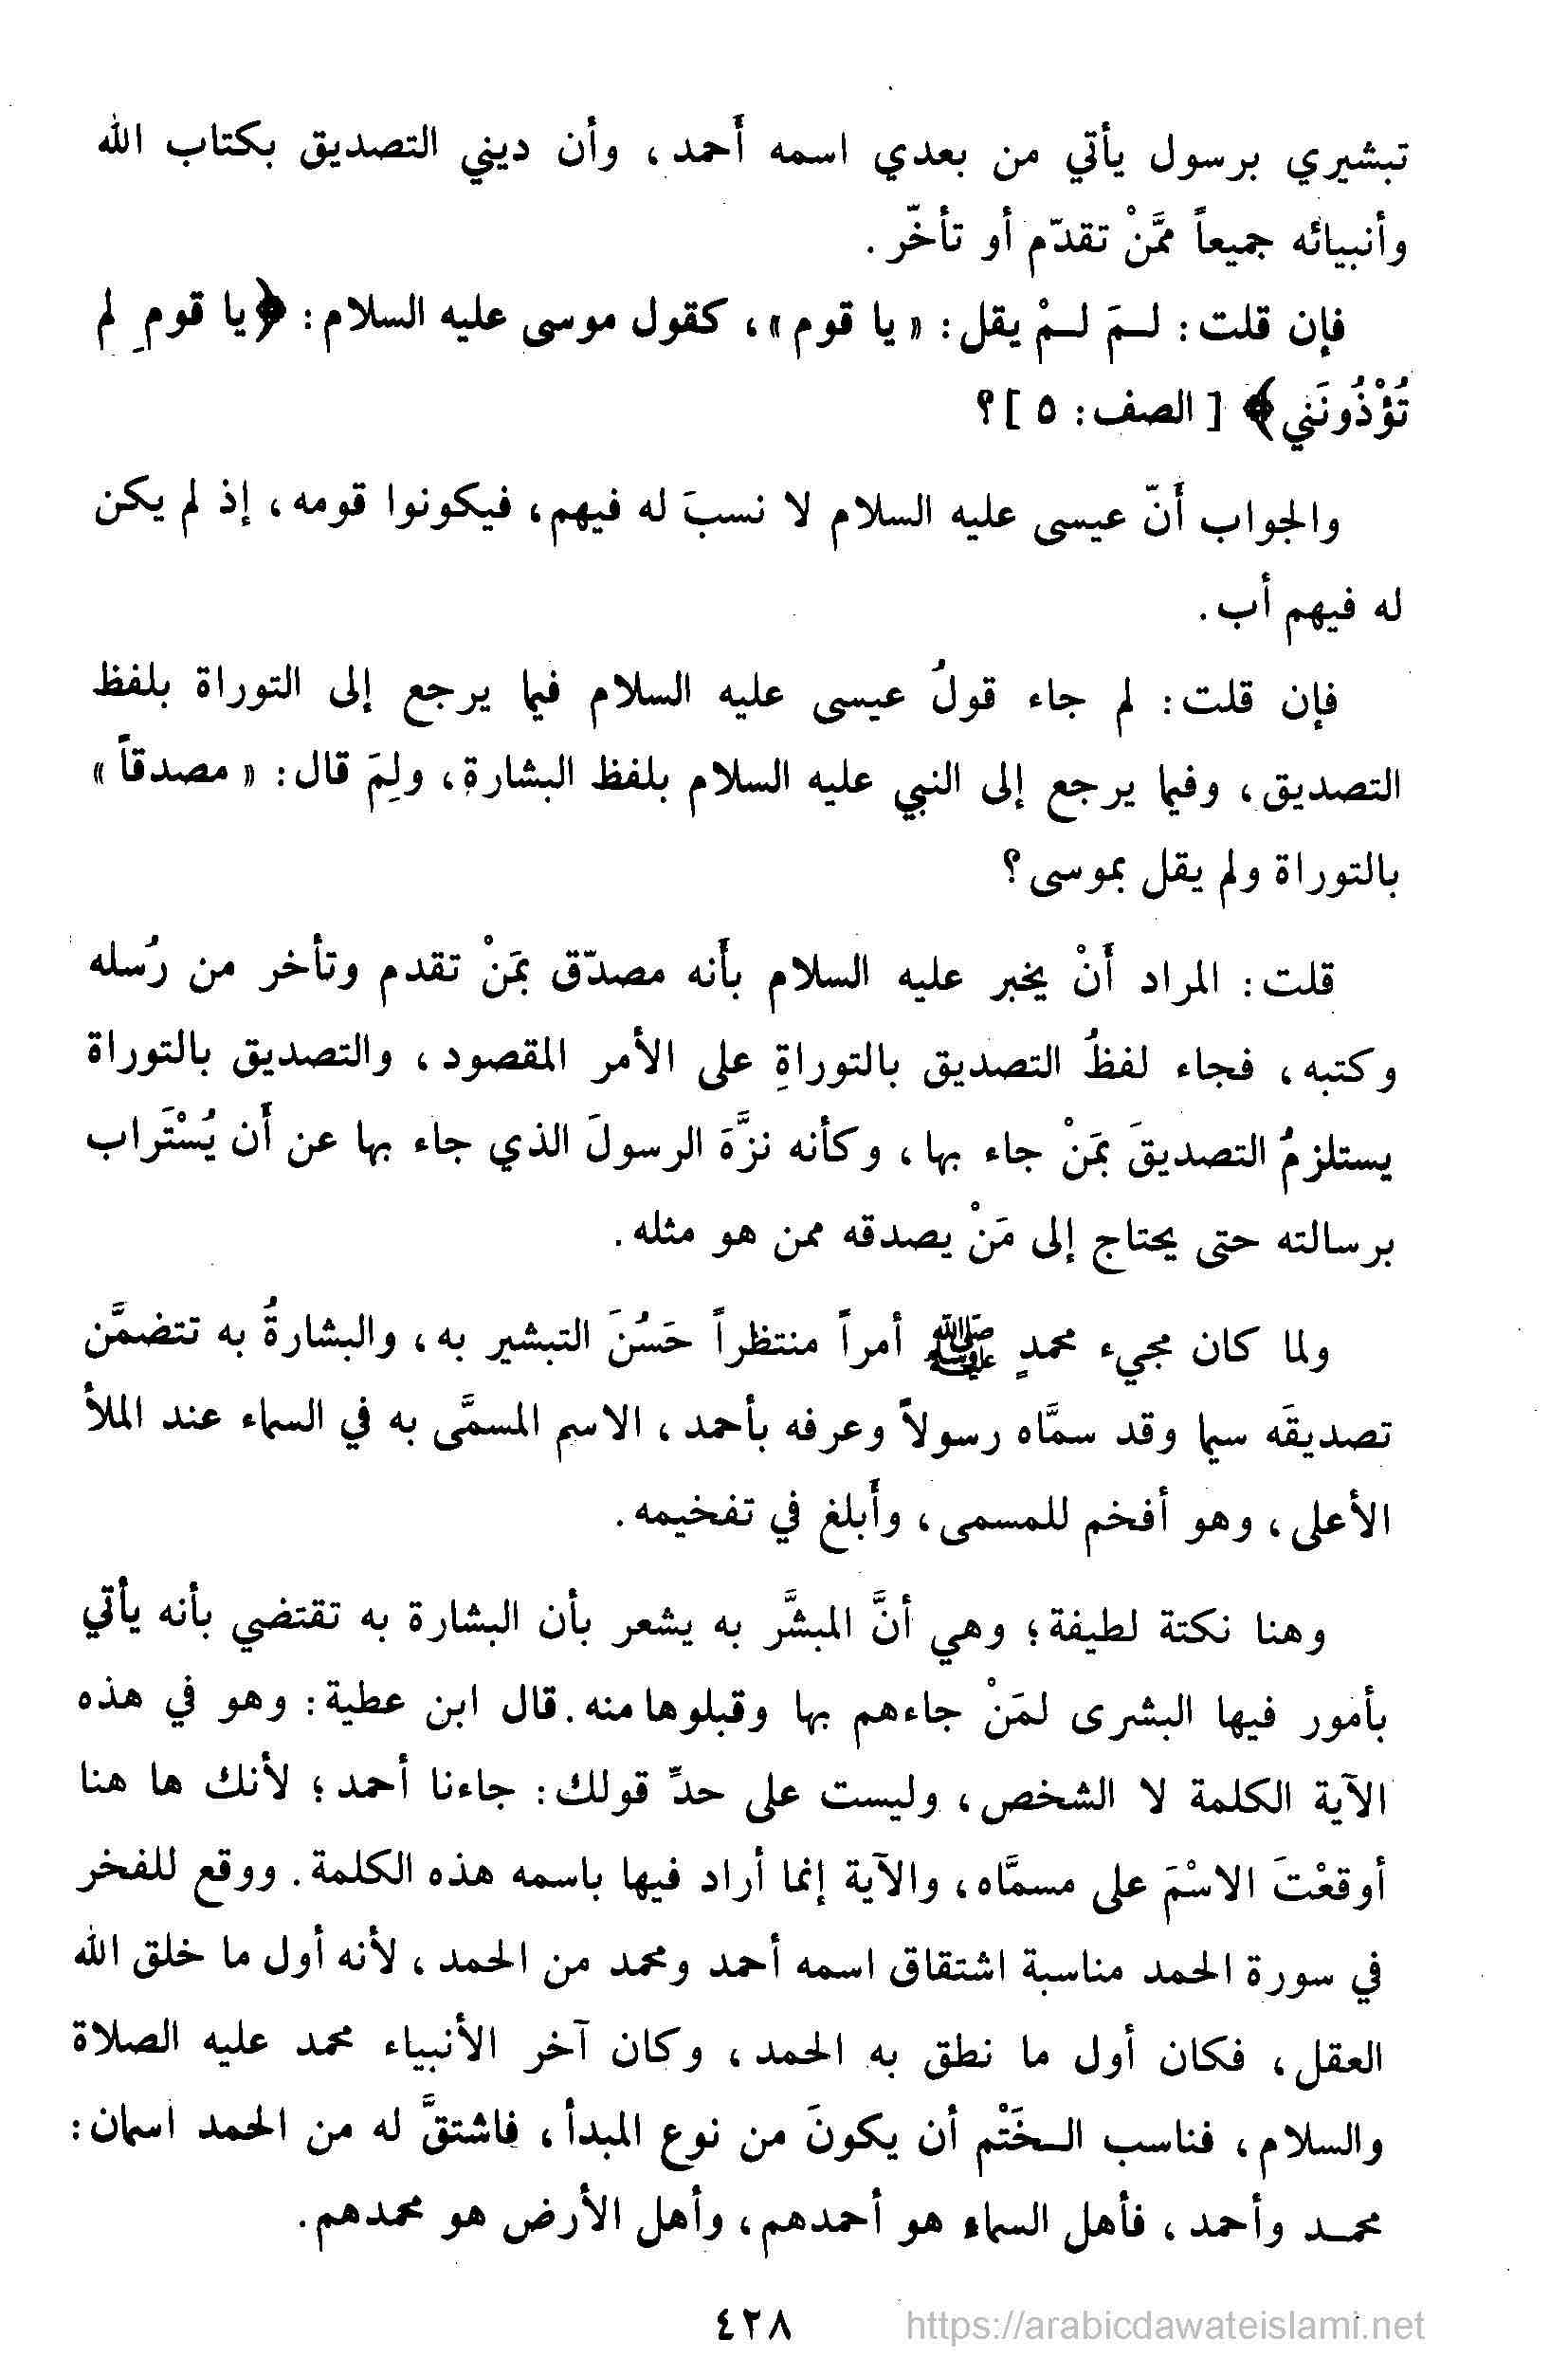 تبشيري برسول يأتي من بعدي اسمه أَحمد، وأن ديني التصديق بكتاب الله
وأنبيائه جميعاً ممَّنْ تقدّم أو تأخّر.
فإن قلت: لـمَ لـمْ يقل: «يا قوم»، كقول موسى عليه السلام: ﴿يا قومِ لم
تُؤْذُونَني﴾ [الصف: ٥]؟
والجواب أَنّ عيسى عليه السلام لا نسبَ له فيهم، فيكونوا قومه، إذ لم يكن
له فيهم أب.
فإن قلت: لم جاء قولُ عيسى عليه السلام فيما يرجع إلى التوراة بلفظ
التصديق، وفيما يرجع إلى النبي عليه السلام بلفظ البشارة، ولِمَ قال: «مصدقاً»
بالتوراة ولم يقل بموسى؟
قلت: المراد أَنْ يخبر عليه السلام بأَنه مصدّق بمَنْ تقدم وتأخر من رُسله
وكتبه، فجاء لفظُ التصديق بالتوراةِ على الأمر المقصود، والتصديق بالتوراة
يستلزمُ التصديقَ بمَنْ جاء بها، وكأنه نزَّهَ الرسولَ الذي جاء بها عن أَن يُسْتَراب
برسالته حتى يحتاج إلى مَنْ يصدقه ممن هو مثله.
ولما كان مجيء محمدٍ ﷺ أمراً منتظراً حَسُنَ التبشير به، والبشارةُ به تتضمَّن
تصديقَه سيما وقد سمَّاه رسولاً وعرفه بأحمد، الاسم المسمَّى به في السماء عند الملأ
الأعلى، وهو أفخم للمسمى، وأَبلغ في تفخيمه.
وهنا نكتة لطيفة؛ وهي أنَّ المبشَّر به يشعر بأن البشارة به تقتضي بأنه يأتي
بأمور فيها البشرى لمَنْ جاءهم بها وقبلوها منه. قال ابن عطية: وهو في هذه
الآية الكلمة لا الشخص، وليست على حدِّ قولك: جاءنا أحمد؛ لأنك ها هنا
أوقعْتَ الاسْمَ على مسمَّاه، والآية إنما أراد فيها باسمه هذه الكلمة. ووقع للفخر
في سورة الحمد مناسبة اشتقاق اسمه أحمد ومحمد من الحمد، لأنه أول ما خلق الله
العقل، فكان أول ما نطق به الحمد، وكان آخر الأنبياء محمد عليه الصلاة
والسلام، فناسب الـخَتْم أن يكونَ من نوع المبدأ، فاشتقَّ له من الحمد اسمان:
محمـد وأحمد، فأهل السماء هو أحمدهم، وأهل الأرض هو محمدهم.
٤٢٨
https://arabicdawateislami.net